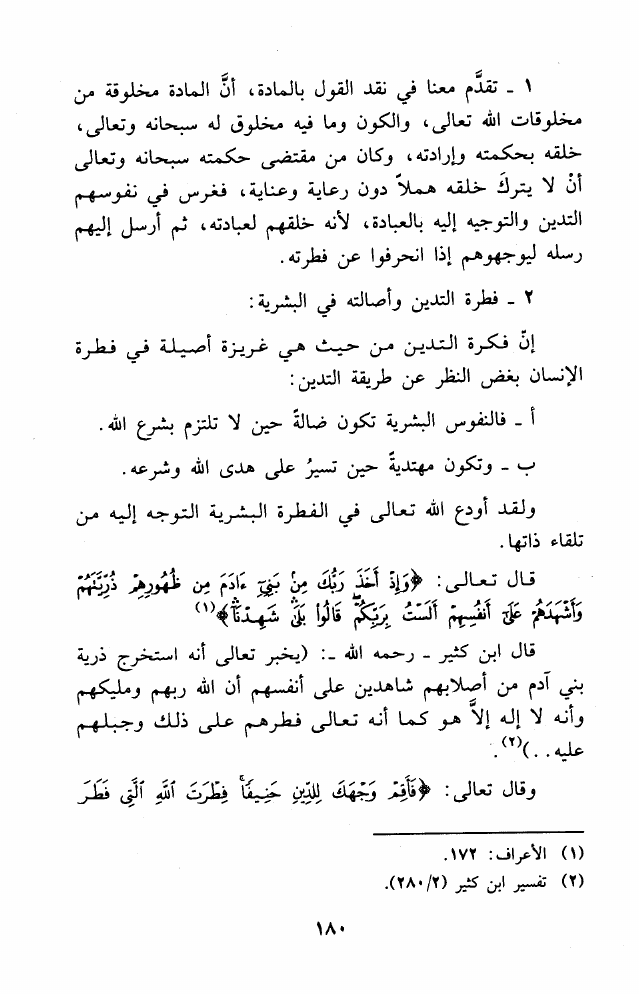 ١ ـ تقدَّم معنا في نقد القول بالمادة، أنَّ المادة مخلوقة من
مخلوقات الله تعالى، والكون وما فيه مخلوق له سبحانه وتعالى،
خلقه بحكمته وإرادته، وكان من مقتضى حكمته سبحانه وتعالى
أنْ لا يتركَ خلقه هملاً دون رعاية وعناية، فغرس في نفوسهم
التدين والتوجيه إليه بالعبادة، لأنه خلقهم لعبادته، ثم أرسل إليهم
رسله ليوجهوهم إذا انحرفوا عن فطرته.
٢ ـ فطرة التدين وأصالته في البشرية:
إنّ فكرة التدين من حيث هي غريزة أصيلة في فطرة
الإنسان بغض النظر عن طريقة التدين:
أ ـ فالنفوس البشرية تكون ضالةً حين لا تلتزم بشرع الله.
ب ـ وتكون مهتديةً حين تسيرُ على هدى الله وشرعه.
ولقد أودع الله تعالى في الفطرة البشرية التوجه إليه من
تلقاء ذاتها.
قال تعالى: ﴿وَإِذْ أَخَذَ رَبُّكَ مِنْ بَنِيٓ ءَادَمَ مِن ظُهُورِهِمْ ذُرِّيَّتَهُمْ
وَأَشْهَدَهُمْ عَلَىٰٓ أَنفُسِهِمْ أَلَسْتُ بِرَبِّكُمْ ۖ قَالُوا۟ بَلَىٰ ۛ شَهِدْنَآ ۛ﴾(١)
قال ابن كثير ـ رحمه الله ـ: (يخبر تعالى أنه استخرج ذرية
بني آدم من أصلابهم شاهدين على أنفسهم أن الله ربهم ومليكهم
وأنه لا إله إلاَّ هو كما أنه تعالى فطرهم على ذلك وجبلهم
عليه..)(٢).
وقال تعالى: ﴿فَأَقِمْ وَجْهَكَ لِلدِّينِ حَنِيفًا ۚ فِطْرَتَ ٱللَّهِ ٱلَّتِي فَطَرَ
(١) الأعراف: ١٧٢.
(٢) تفسير ابن كثير (٢٨٠/٢).
١٨٠